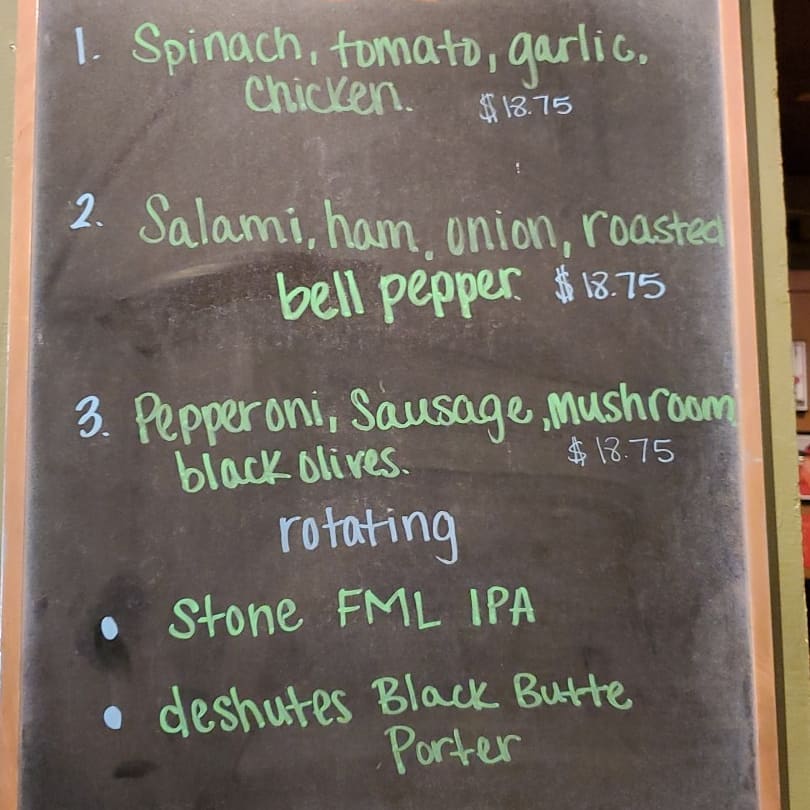 1. Spinach, tomato, garlic.
Chicken. $18.75
2. Salami, ham, onion, roasted
bell pepper. $18.75
3. Pepperoni, Sausage, Mushroom
black olives. $18.75
rotating
• Stone FML IPA
• deshutes Black Butte
Porter